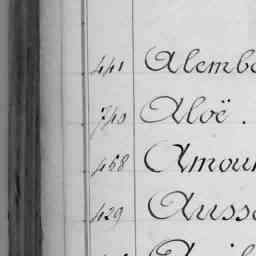 441 Alemb
740 Aloë.
468 Amour
429 Auss